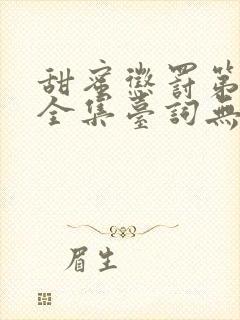 甜蜜懲罰第
全集臺詞無
眉生